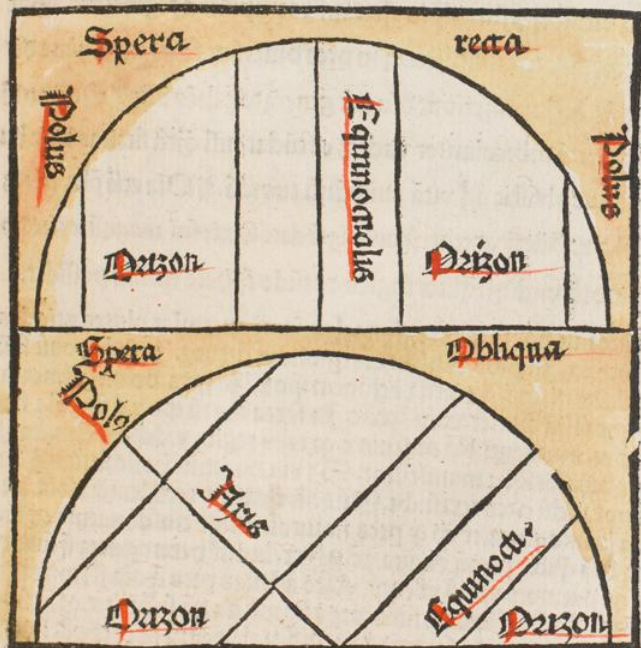 Spera recta
Polus
Equinoctialis
Polus
Orizon
Orizon
Spera Obliqua
Polꝰ
Axis
Equinocti
Orizon
Orizon